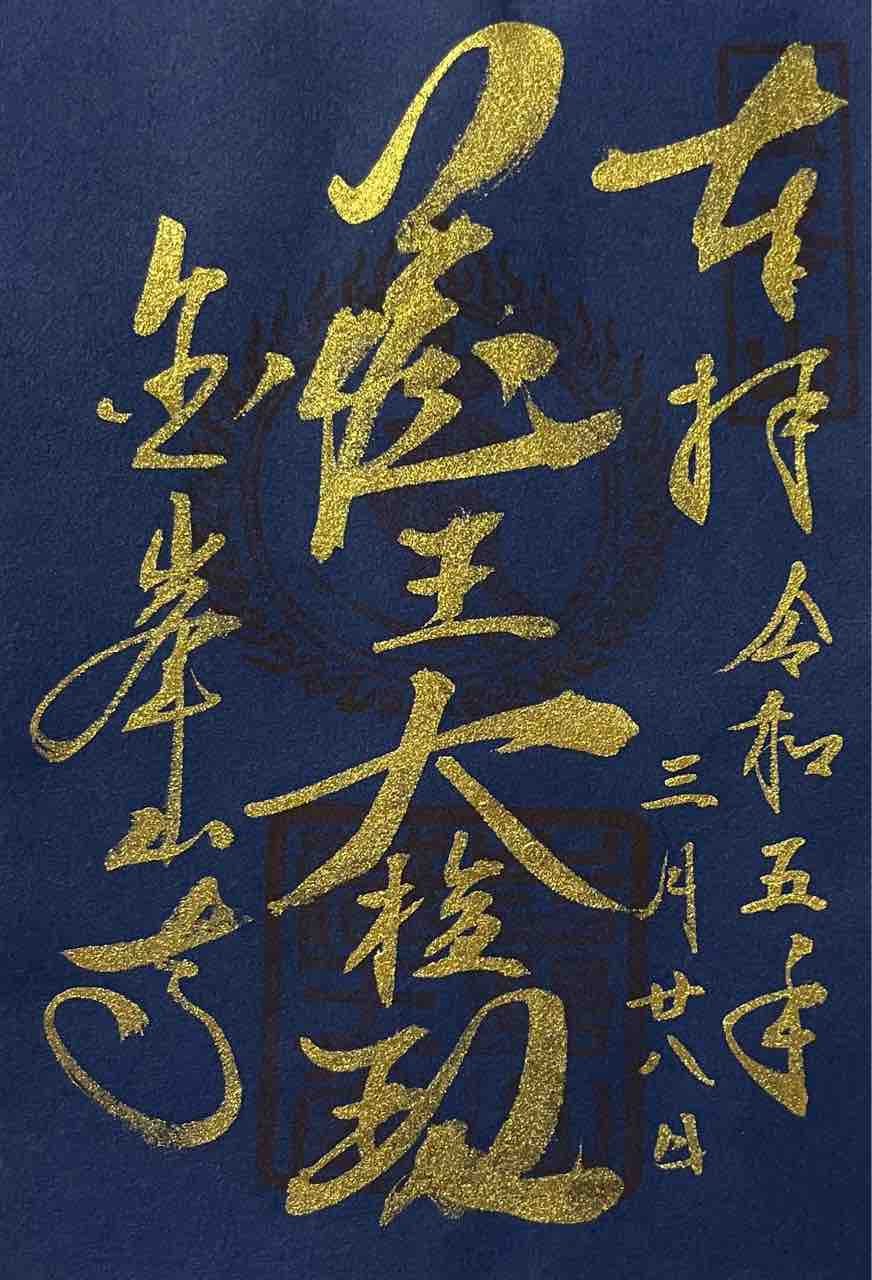 奉拝
令和五年
三月廿八日
蔵王大権現
金峯山寺